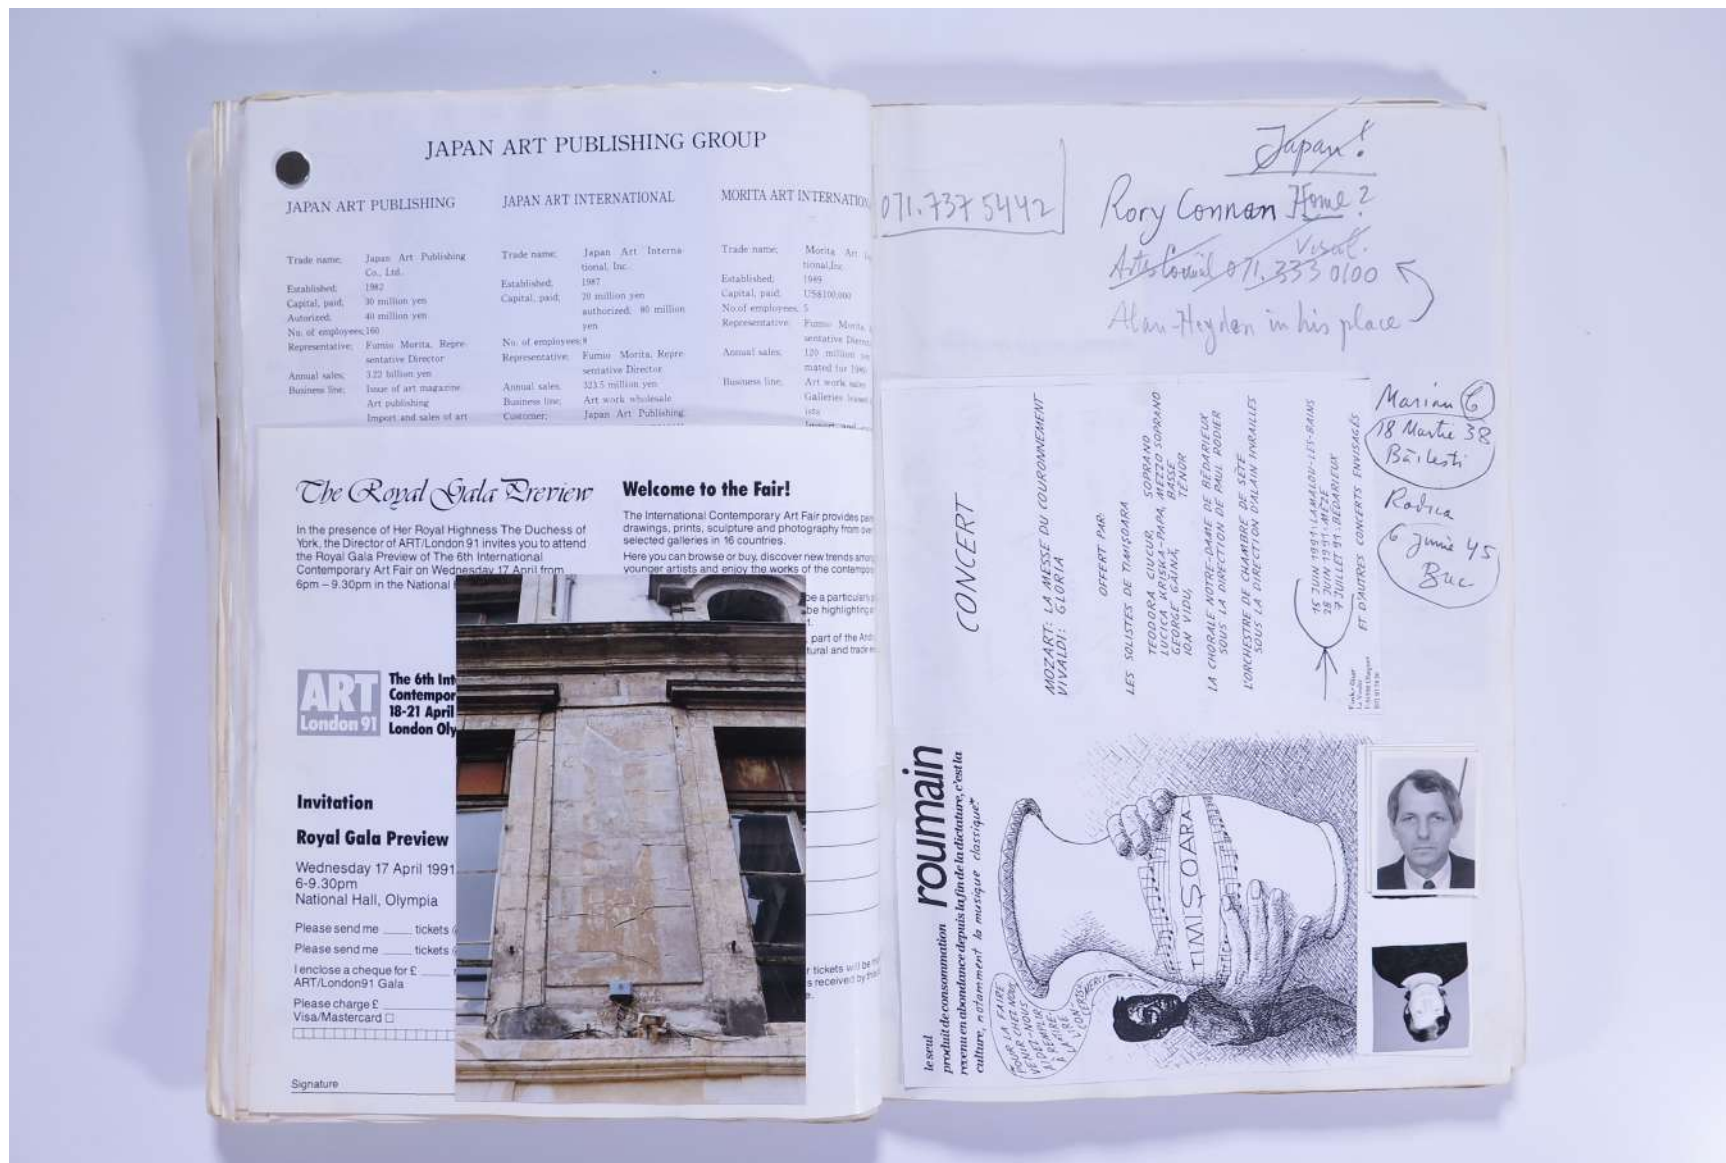 JAPAN ART PUBLISHING GROUP
JAPAN ART PUBLISHING
Trade name; Japan Art Publishing
Co., Ltd.
Established; 1982
Capital, paid; 30 million yen
Autorized; 40 million yen
No. of employees; 160
Representative; Fumio Morita, Repre-
sentative Director
Annual sales; 3.22 billion yen
Business line; Issue of art magazine
Art publishing
Import and sales of art
JAPAN ART INTERNATIONAL
Trade name; Japan Art Interna-
tional, Inc.
Established; 1987
Capital, paid; 20 million yen
authorized; 80 million
yen
No. of employees; 8
Representative; Fumio Morita, Repre-
sentative Director
Annual sales; 323.5 million yen
Business line; Art work wholesale
Customer; Japan Art Publishing
MORITA ART INTERNATION
Trade name; Morita Art
tional, Inc
Established; 1989
Capital, paid; US$100,000
No.of employees; 5
Representative; Fumio Morita,
sentative Direc
Annual sales; 120 million
mated for 1989
Business line; Art work sales
Galleries
The Royal Gala Preview
In the presence of Her Royal Highness The Duchess of
York, the Director of ART/London 91 invites you to attend
the Royal Gala Preview of The 6th International
Contemporary Art Fair on Wednesday 17 April from
6pm – 9.30pm in the National
Welcome to the Fair!
The International Contemporary Art Fair provides
drawings, prints, sculpture and photography from
selected galleries in 16 countries.
Here you can browse or buy, discover new trends
younger artists and enjoy the works of the
be a particular
be highlighting
part of the
tural and trade
ART
London 91
The 6th Int
Contempor
18-21 April
London Oly
Invitation
Royal Gala Preview
Wednesday 17 April 1991
6-9.30pm
National Hall, Olympia
Please send me ____ tickets
Please send me ____ tickets
I enclose a cheque for £ ____
ART/London91 Gala
Please charge £ ____
Visa/Mastercard □
r tickets will be
s received by
Signature
071.737 5442
Japan!
Rory Connan Home?
Visual.
Arts Council 071.333 0100
Alan-Heyden in his place
CONCERT
MOZART: LA MESSE DU COURONNEMENT
VIVALDI: GLORIA
OFFERT PAR:
LES SOLISTES DE TIMISOARA
TEODORA CIUCUR, SOPRANO
LUCICA KRISKA-PAPA, MEZZO SOPRANO
GEORGE GÂINĂ, BASSE
ION VIDU, TÉNOR
LA CHORALE NOTRE-DAME DE BÉDARIEUX
SOUS LA DIRECTION DE PAUL RODIER
L'ORCHESTRE DE CHAMBRE DE SÈTE
SOUS LA DIRECTION D'ALAIN
15 JUIN 1991: LAMALOU-LES-BAINS
28 JUIN 1991: MÈZE
7 JUILLET 91: BÉDARIEUX
ET D'AUTRES CONCERTS ENVISAGÉS
Marian C
18 Martie 38
Băilesti
Rodica
6 Junie 45
Buc
le seul
produit de consommation roumain
revenu en abondance depuis la fin de la dictature, c'est la
culture, notamment la musique classique.
TIMISOARA
POUR LA FAIRE
VENIR CHEZ NOUS,
VENEZ NOUS
AIDER